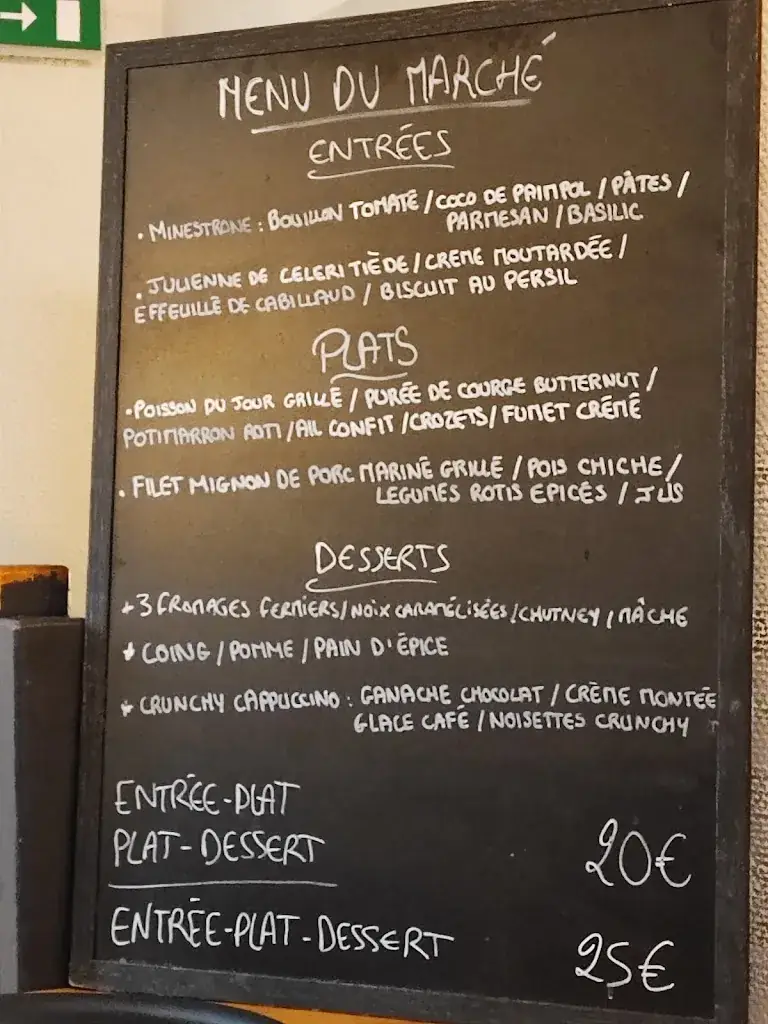 MENU DU MARCHÉ
ENTRÉES
• MINESTRONE : BOUILLON TOMATE / COCO DE PAIMPOL / PÂTES /
PARMESAN / BASILIC
• JULIENNE DE CELERI TIÈDE / CREME MOUTARDÉE /
EFFEUILLÉ DE CABILLAUD / BISCUIT AU PERSIL
PLATS
• POISSON DU JOUR GRILLÉ / PURÉE DE COURGE BUTTERNUT /
POTIMARRON ROTI / AIL CONFIT / CROZETS / FUMET CRÉMÉ
• FILET MIGNON DE PORC MARINÉ GRILLÉ / POIS CHICHE /
LEGUMES ROTIS EPICÉS / JUS
DESSERTS
+ 3 FROMAGES FERMIERS / NOIX CARAMÉLISÉES / CHUTNEY / MÂCHE
+ COING / POMME / PAIN D'ÉPICE
+ CRUNCHY CAPPUCCINO : GANACHE CHOCOLAT / CRÈME MONTÉE
GLACE CAFÉ / NOISETTES CRUNCHY
ENTRÉE-PLAT
PLAT-DESSERT 20€
ENTRÉE-PLAT-DESSERT 25€